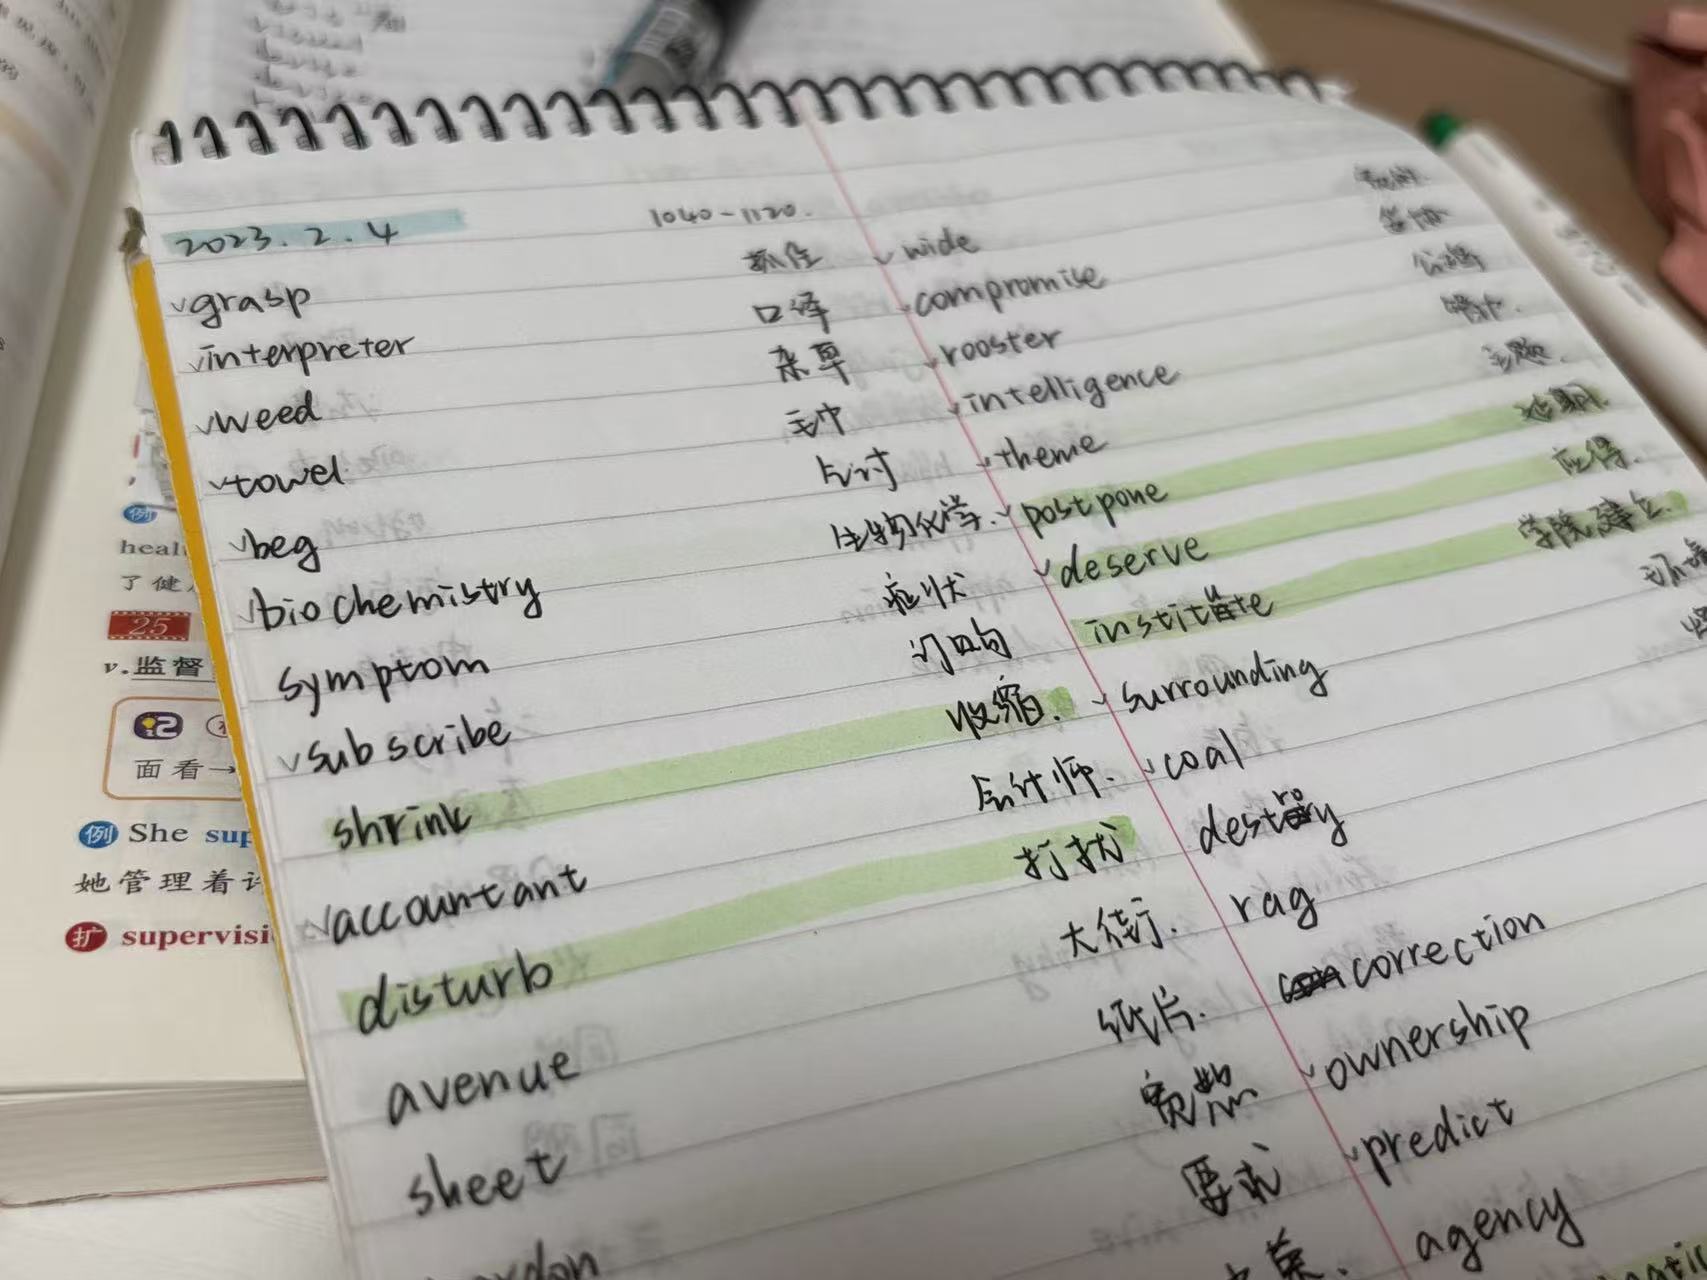 2023.2.4
1040-1120.
grasp 抓住
interpreter 口译
weed 杂草
towel 毛巾
beg 乞讨
biochemistry 生物化学.
symptom 症状
subscribe 订购
shrink 收缩.
accountant 会计师.
disturb 打扰
avenue 大街.
sheet 纸片.
宽恕
要求
wide 宽的.
compromise
rooster 公鸡
intelligence
theme 主题.
postpone 延期.
deserve 应得.
institute 学院,建立.
surrounding 环境
coal
destroy
rag
correction
ownership
predict
agency
例
heal
了健
25
v.监督
面看→
例 She sup
她管理着
扩 supervisi